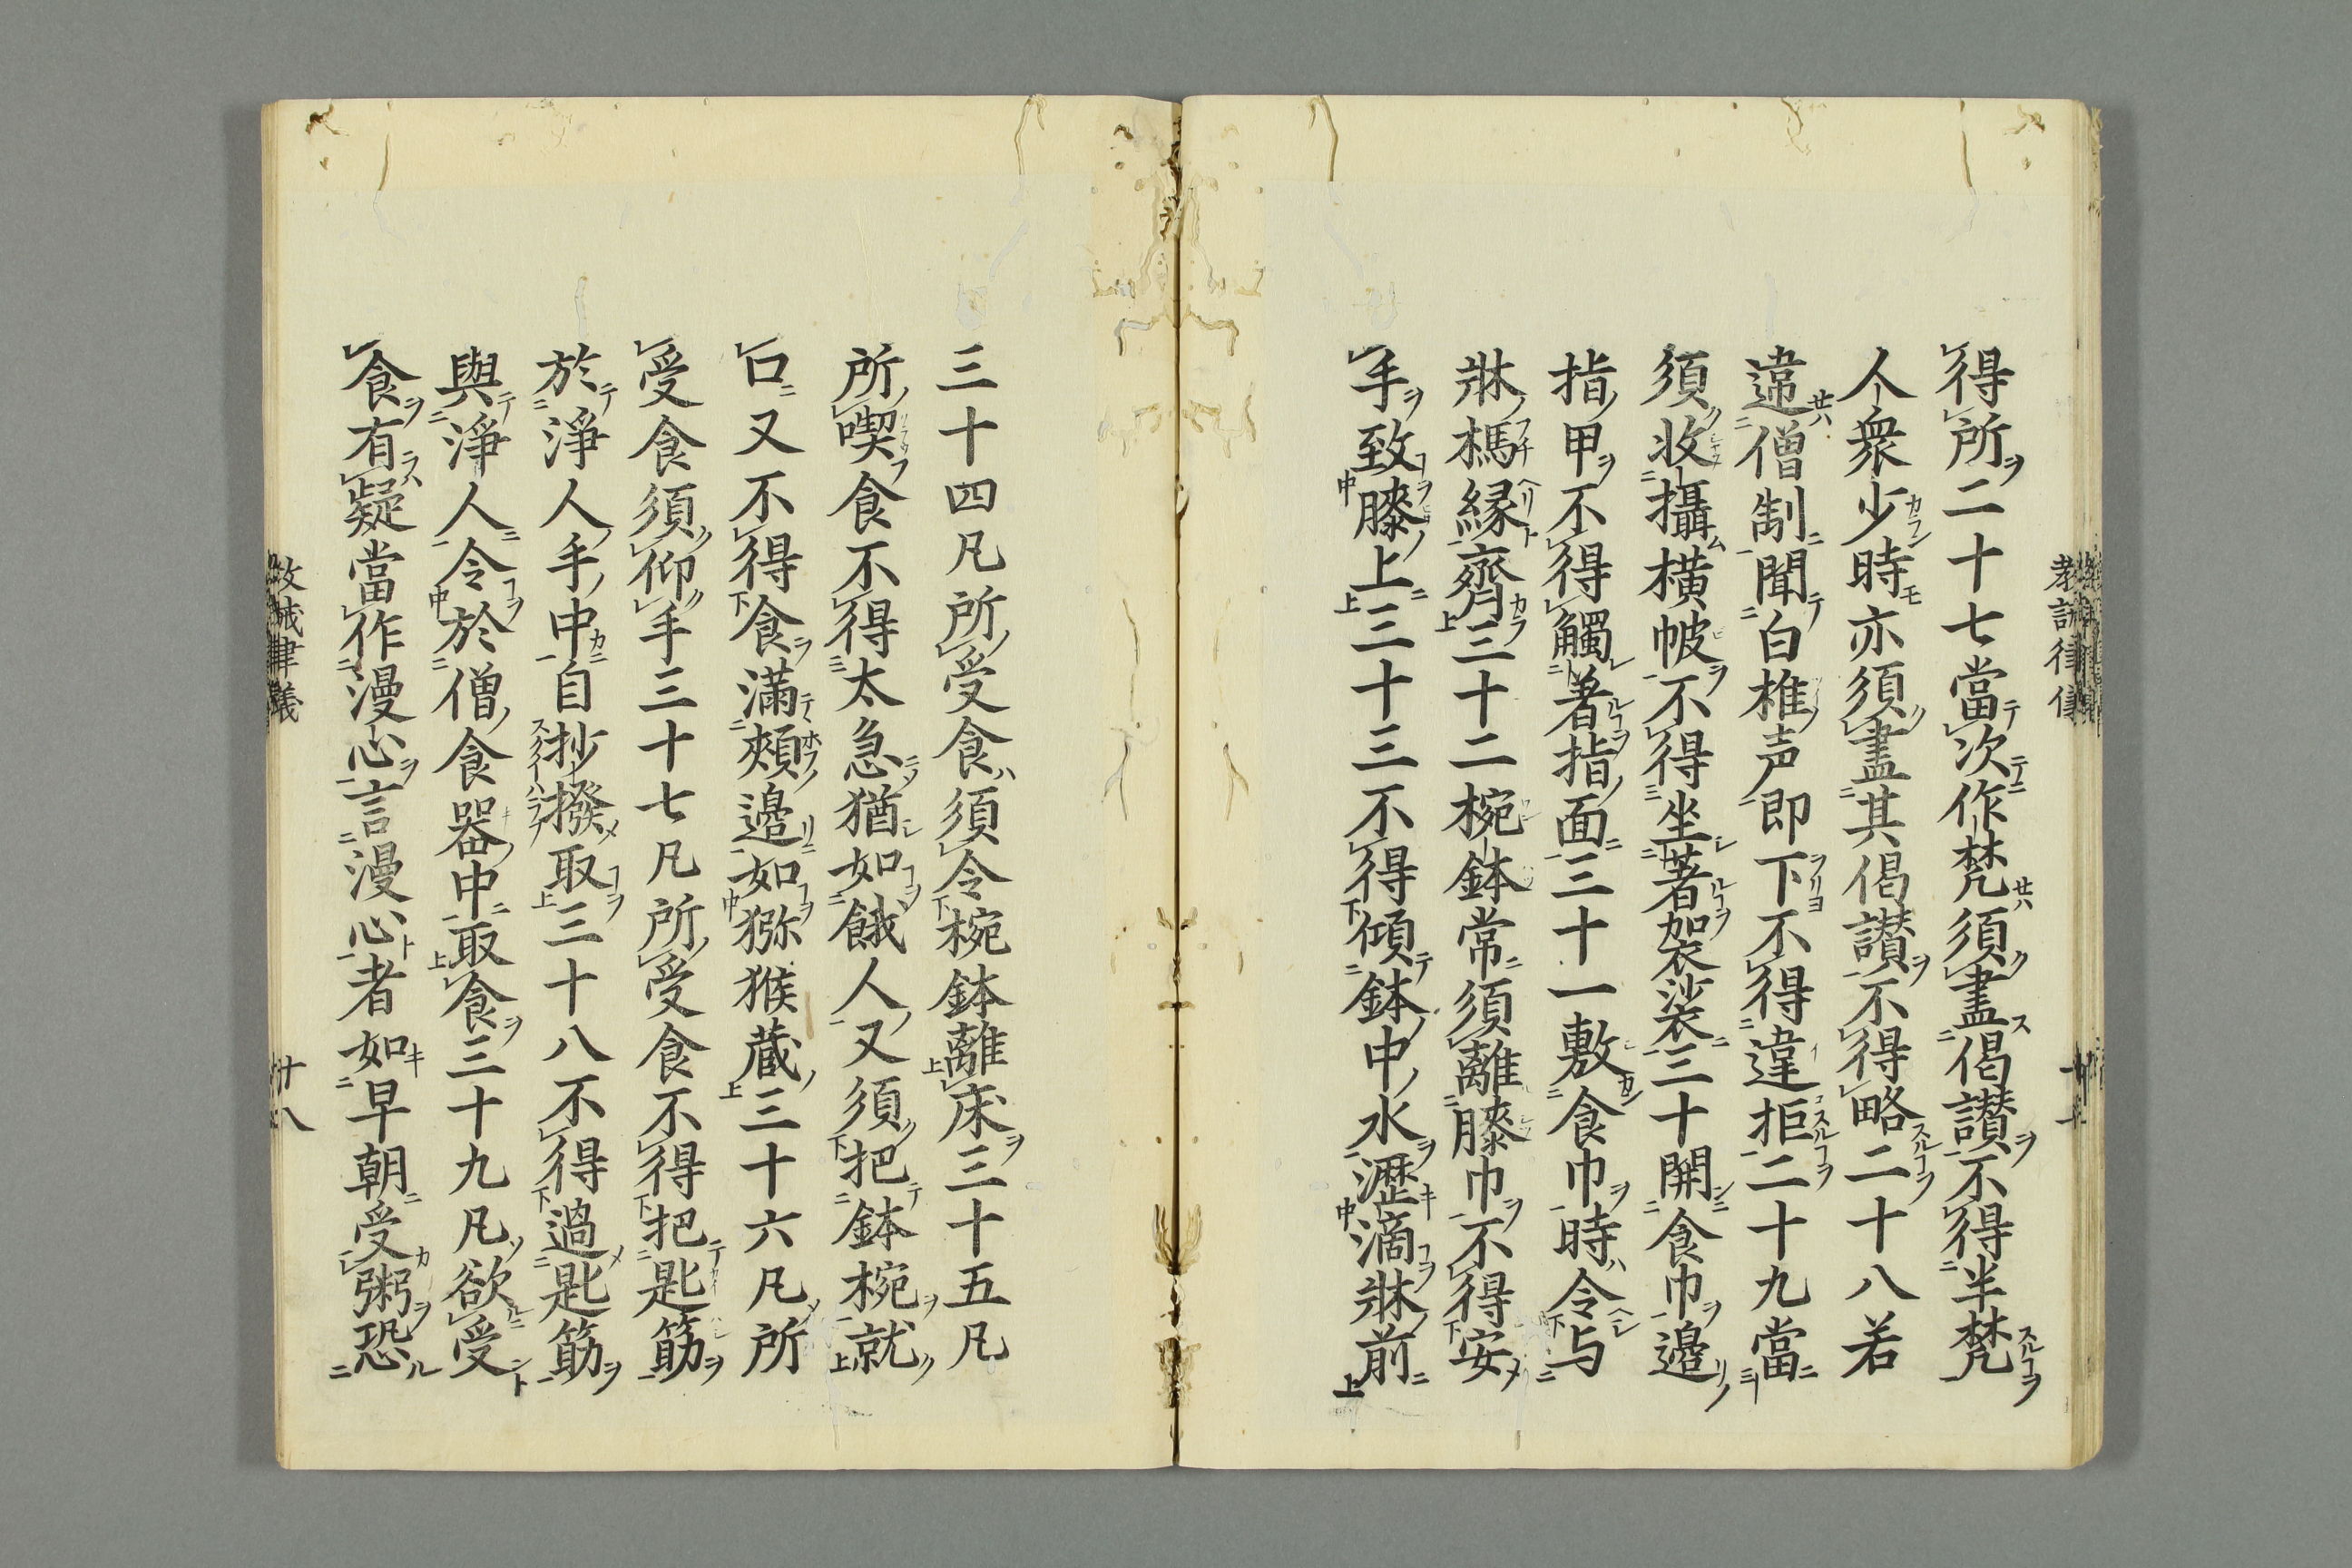 得所二十七當次作梵須盡偈讃不得半梵
人衆少時亦須盡其偈讃不得略二十八若
違僧制聞白椎声即下不得違拒二十九當
須收攝横帔不得坐著袈裟三十開食巾邊
指甲不得觸著指面三十一敷食巾時令与
牀榪縁齊三十二椀鉢常須離膝巾不得安
手致膝上三十三不得傾鉢中水瀝滴牀前
三十四凡所受食須令椀鉢離床三十五凡
所喫食不得太急猶如餓人又須把鉢椀就
口又不得食滿頰邊如獼猴蔵三十六凡所
受食須仰手三十七凡所受食不得把匙筯
於淨人手中自抄撥取三十八不得過匙筯
與淨人令於僧食器中取食三十九凡欲受
食有疑當作漫心言漫心者如早朝受粥恐
教誡律儀
廿八